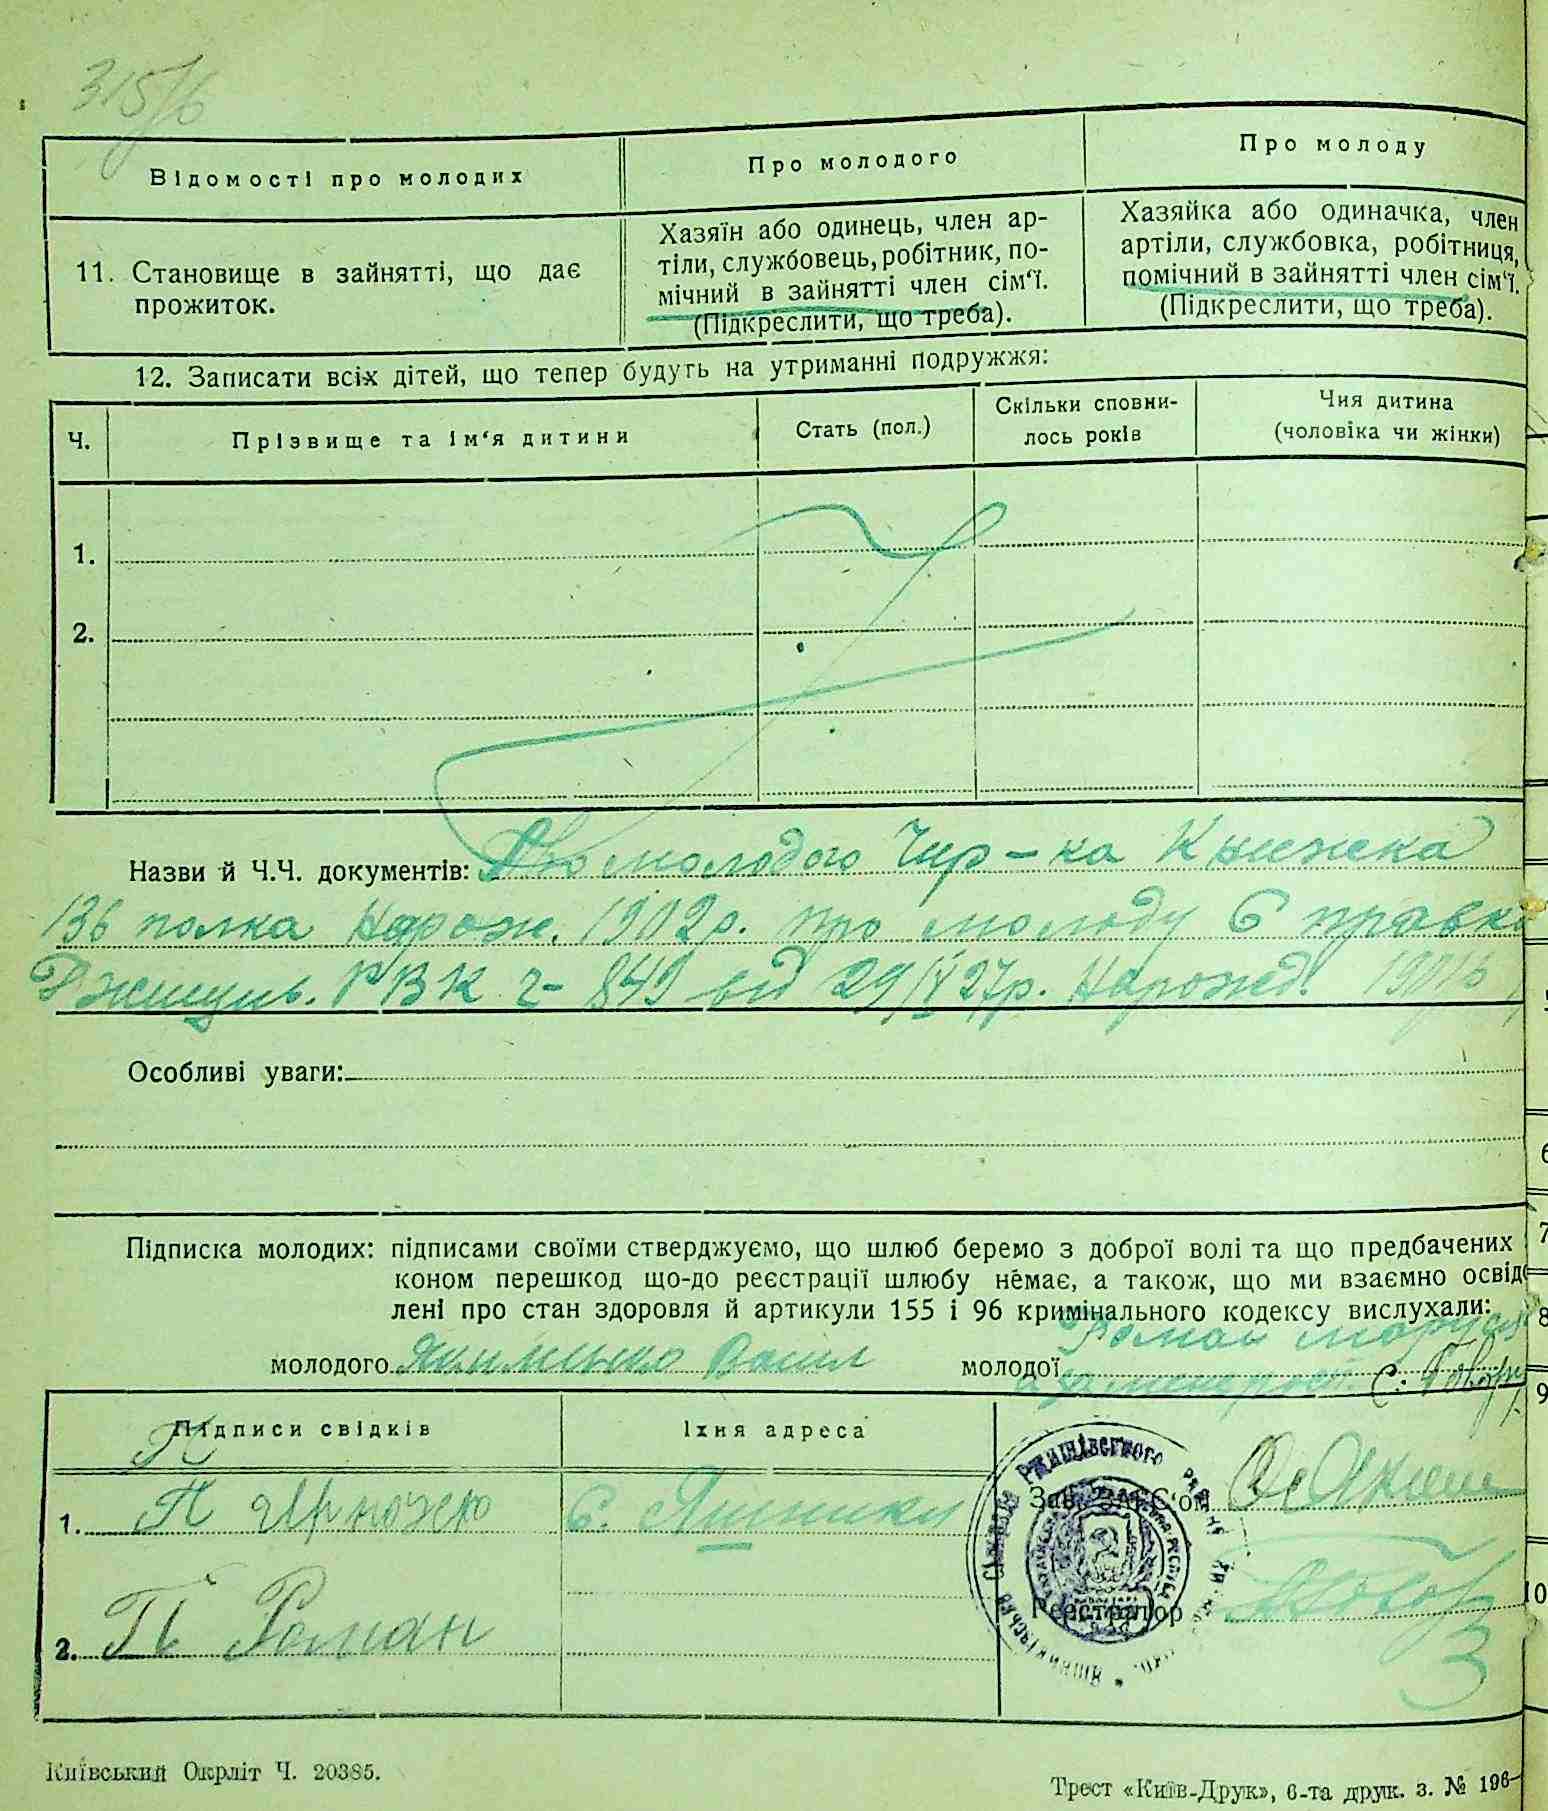 315/6
Відомості про молодих
Про молодого
Про молоду
11. Становище в зайнятті, що дає
прожиток.
Хазяїн або одинець, член ар-
тіли, службовець, робітник, по-
мічний в зайнятті член сім'ї.
(Підкреслити, що треба).
Хазяйка або одиначка, член
артіли, службовка, робітниця,
помічний в зайнятті член сім'ї.
(Підкреслити, що треба).
12. Записати всіх дітей, що тепер будуть на утриманні подружжя:
Ч.
Прізвище та ім'я дитини
Стать (пол.)
Скільки сповни-
лось років
Чия дитина
(чоловіка чи жінки)
1.
2.
Назви й Ч.Ч. документів: молодого Чер-ка Книжка
136 полка Нарож. 1902р. про молоду Справка
РВК ч- 849 від 29/IV 27р. Нарожд.
Особливі уваги:
Підписка молодих: підписами своїми стверджуємо, що шлюб беремо з доброї волі та що предбачених
коном перешкод що-до реєстрації шлюбу немає, а також, що ми взаємно освідо
лені про стан здоровля й артикули 155 і 96 кримінального кодексу вислухали:
молодого Якименко Васил
молодої Роман Маруся
Підписи свідків
Їхня адреса
П
1. П
С. Яшники
2. П Роман
Зав. ЗАГС'ом
Реєстратор
3
Київський Окрліт Ч. 20385.
Трест «Київ-Друк», 6-та друк. з. № 196-
5
6
7
8
9
10